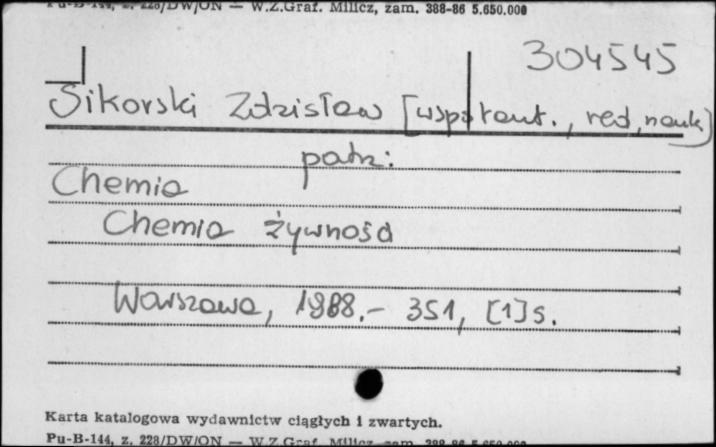 Pu-B-144, z. 228/DW/ON — W.Z.Graf. Milicz, zam. 388-86 5.650.000
304545
Sikorski Zdzisław [współaut., red. nauk]
patrz:
Chemia
Chemia żywności
Warszawa, 1988.- 351, [1] s.
Karta katalogowa wydawnictw ciągłych i zwartych.
Pu-B-144, z. 228/DW/ON — W.Z.Graf. Milicz, zam. 388-86 5.650.000